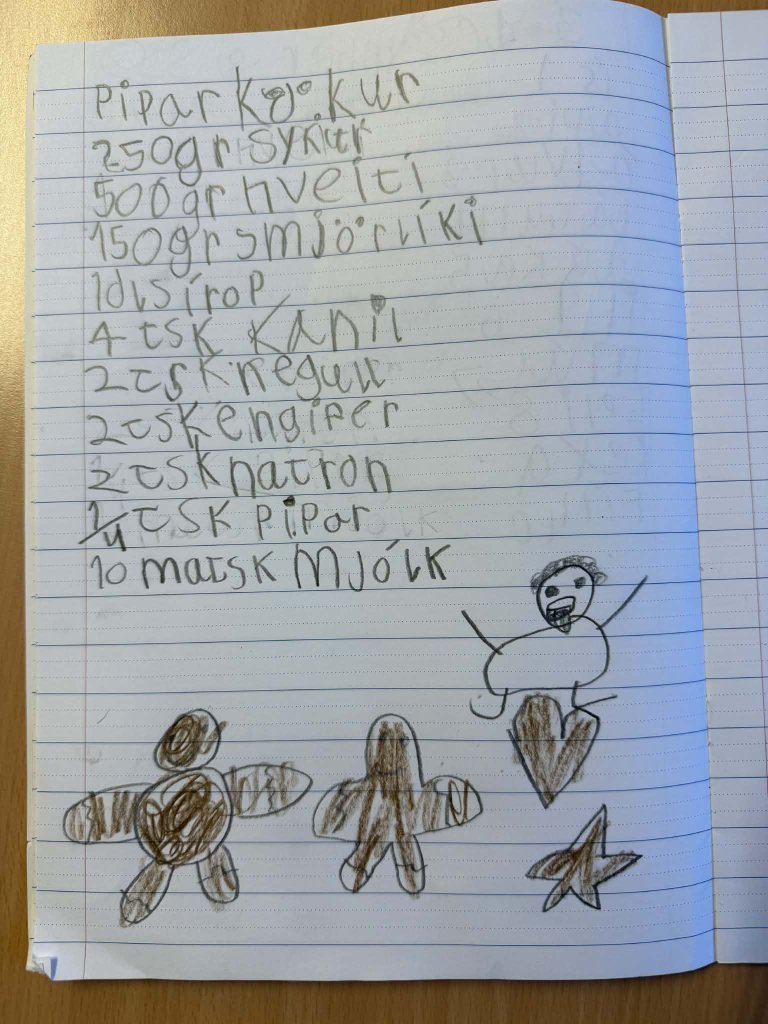 Piparkökur
250gr sykur
500gr hveiti
150gr smjörlíki
1dl síróp
4 tsk kanil
2 tsk negull
2 tsk engifer
2 tsk natron
1/4 tsk pipar
10 matsk mjólk